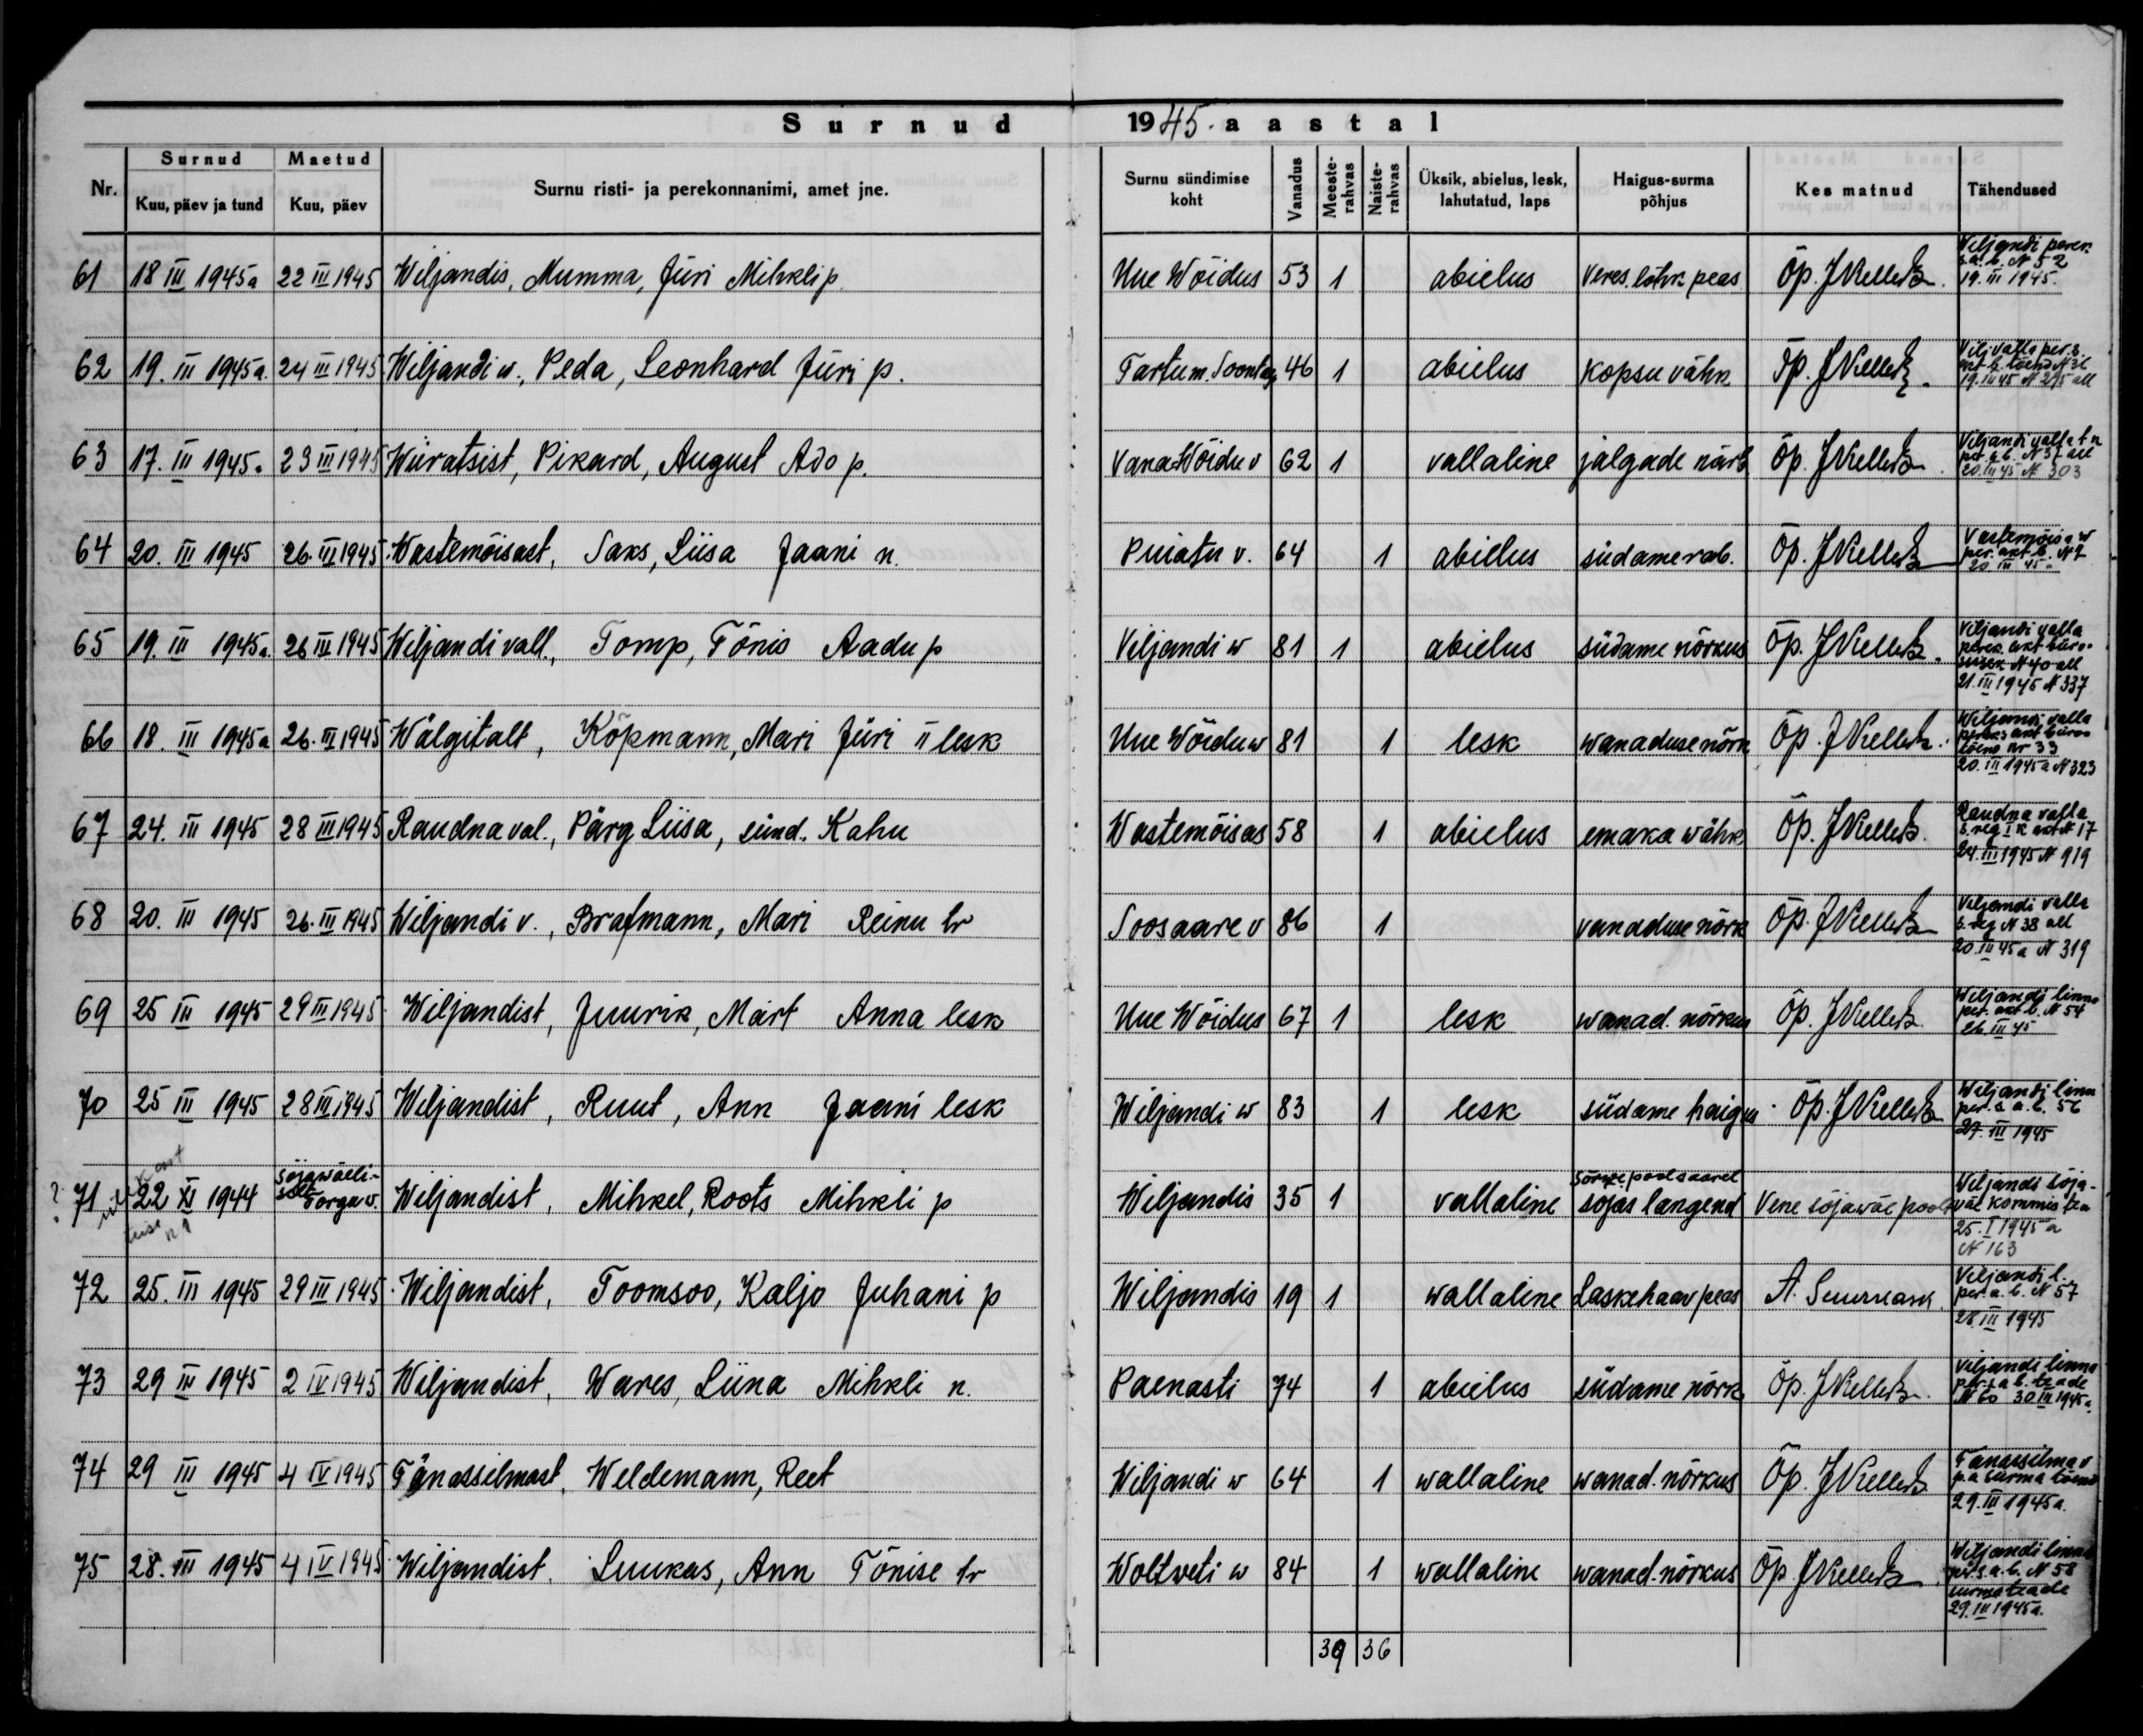 Surnud 1945. aastal
Nr. Surnud Kuu, päev ja tund Maetud Kuu, päev Surnu risti- ja perekonnanimi, amet jne. Surnu sündimise koht Vanadus Meeste-rahvas Naiste-rahvas Üksik, abielus, lesk, lahutatud, laps Haigus-surma põhjus Kes matnud Tähendused
61 18 III 1945a 22 III 1945 Wiljandis, Mumma, Jüri Mihkli p. Uue Wõidus 53 1 abielus veres. lõhk peas Õp. J Kellerb. Viljandi perek. s.a.b. N 52 19. III 1945.
62 19. III 1945a. 24 III 1945 Wiljandi w., Peda, Leonhard Jüri p. Tartu m. Soontag 46 1 abielus kopsu vähk Õp. J Viljandi valla per. s. akt b. tõend N 36 19. III 45 N 295 all
63 17. III 1945. 23 III 1945 Wiiratsist, Pikard, August Ado p. Vana Wõidu v 62 1 vallaline jalgade närb Õp. J Viljandi valla t n per. a b. N 37 all 20. III 45 N 303
64 20. III 1945 26. III 1945 Wastemõisast, Saks, Liisa Jaani n. Puiatu v. 64 1 abielus südame rab. Õp. J Vastemõisa w per. akt b. N 7 20. III 45a
65 19. III 1945a. 26 III 1945 Wiljandi vall., Tomp, Tõnis Aadu p Viljandi w 81 1 abielus südame nõrkus Õp. J Viljandi valla perek. akt büroo N 40 all 21. III 1945 N 337
66 18. III 1945a 26. III 1945 Wälgitalt, Köpmann, Mari Jüri II lesk Uue Wõidu w 81 1 lesk wanaduse nõrk Õp. J Wiljandi valla pereks akt büroo tõend nr 33 20. III 1945a N 323
67 24. III 1945 28 III 1945 Raudna val., Pärg Liisa, sünd. Kahu Wastemõisas 58 1 abielus emaka wähk Õp. J Raudna valla s. reg I k akt N 17 24. III 1945 N 919
68 20. III 1945 26. III 1945 Wiljandi v., Brafmann, Mari Reinu tr Soosaare v 86 1 vanaduse nõrk Õp. J Viljandi valla s. reg N 38 all 20. III 45 a N 319
69 25 III 1945 29 III 1945 Wiljandist, Juurik, Märt Anna lesk Uue Wõidus 67 1 lesk wanad. nõrkus Õp. J Wiljandi linna per. akt b. N 54 26. III 45
70 25 III 1945 28 III 1945 Wiljandist, Ruut, Ann Jaani lesk Wiljandi w 83 1 lesk südame haigus Õp. J Wiljandi linn per. s. a. b. 56 27. III 1945
? 71 22 XI 1944 sõjawäeliselt Torgu v. Wiljandist, Mihkel, Roots Mihkli p Wiljandis 35 1 vallaline Sõrwe poolsaarel sõjas langend Vene sõjawäe poolt Viljandi sõjaväe kommis tea 25. I 1945 a N 163
72 25. III 1945 29 III 1945 Wiljandist, Toomsoo, Kaljo Juhani p Wiljandis 19 1 wallaline Laskehaav peas A. Viljandi l. per. a. b. N 57 28. III 1945
73 29 III 1945 2 IV 1945 Wiljandist, Wares, Liina Mihkli n. Paenasti 74 1 abielus südame nõrk Õp. J Viljandi linna per. s a b. teade N 60 30 III 1945 a.
74 29 III 1945 4 IV 1945 Tänassilmast, Weldemann, Reet Wiljandi w 64 1 wallaline wanad. nõrkus Õp. J Tänassilma v p.a surma tõend 29. III 1945 a.
75 28. III 1945 4 IV 1945 Wiljandist. Luukas, Ann Tõnise tr Woltveti w 84 1 wallaline wanad. nõrkus Õp J Wiljandi linna per. s. a. b. N 58 surma teade 29. III 1945 a.
39 36